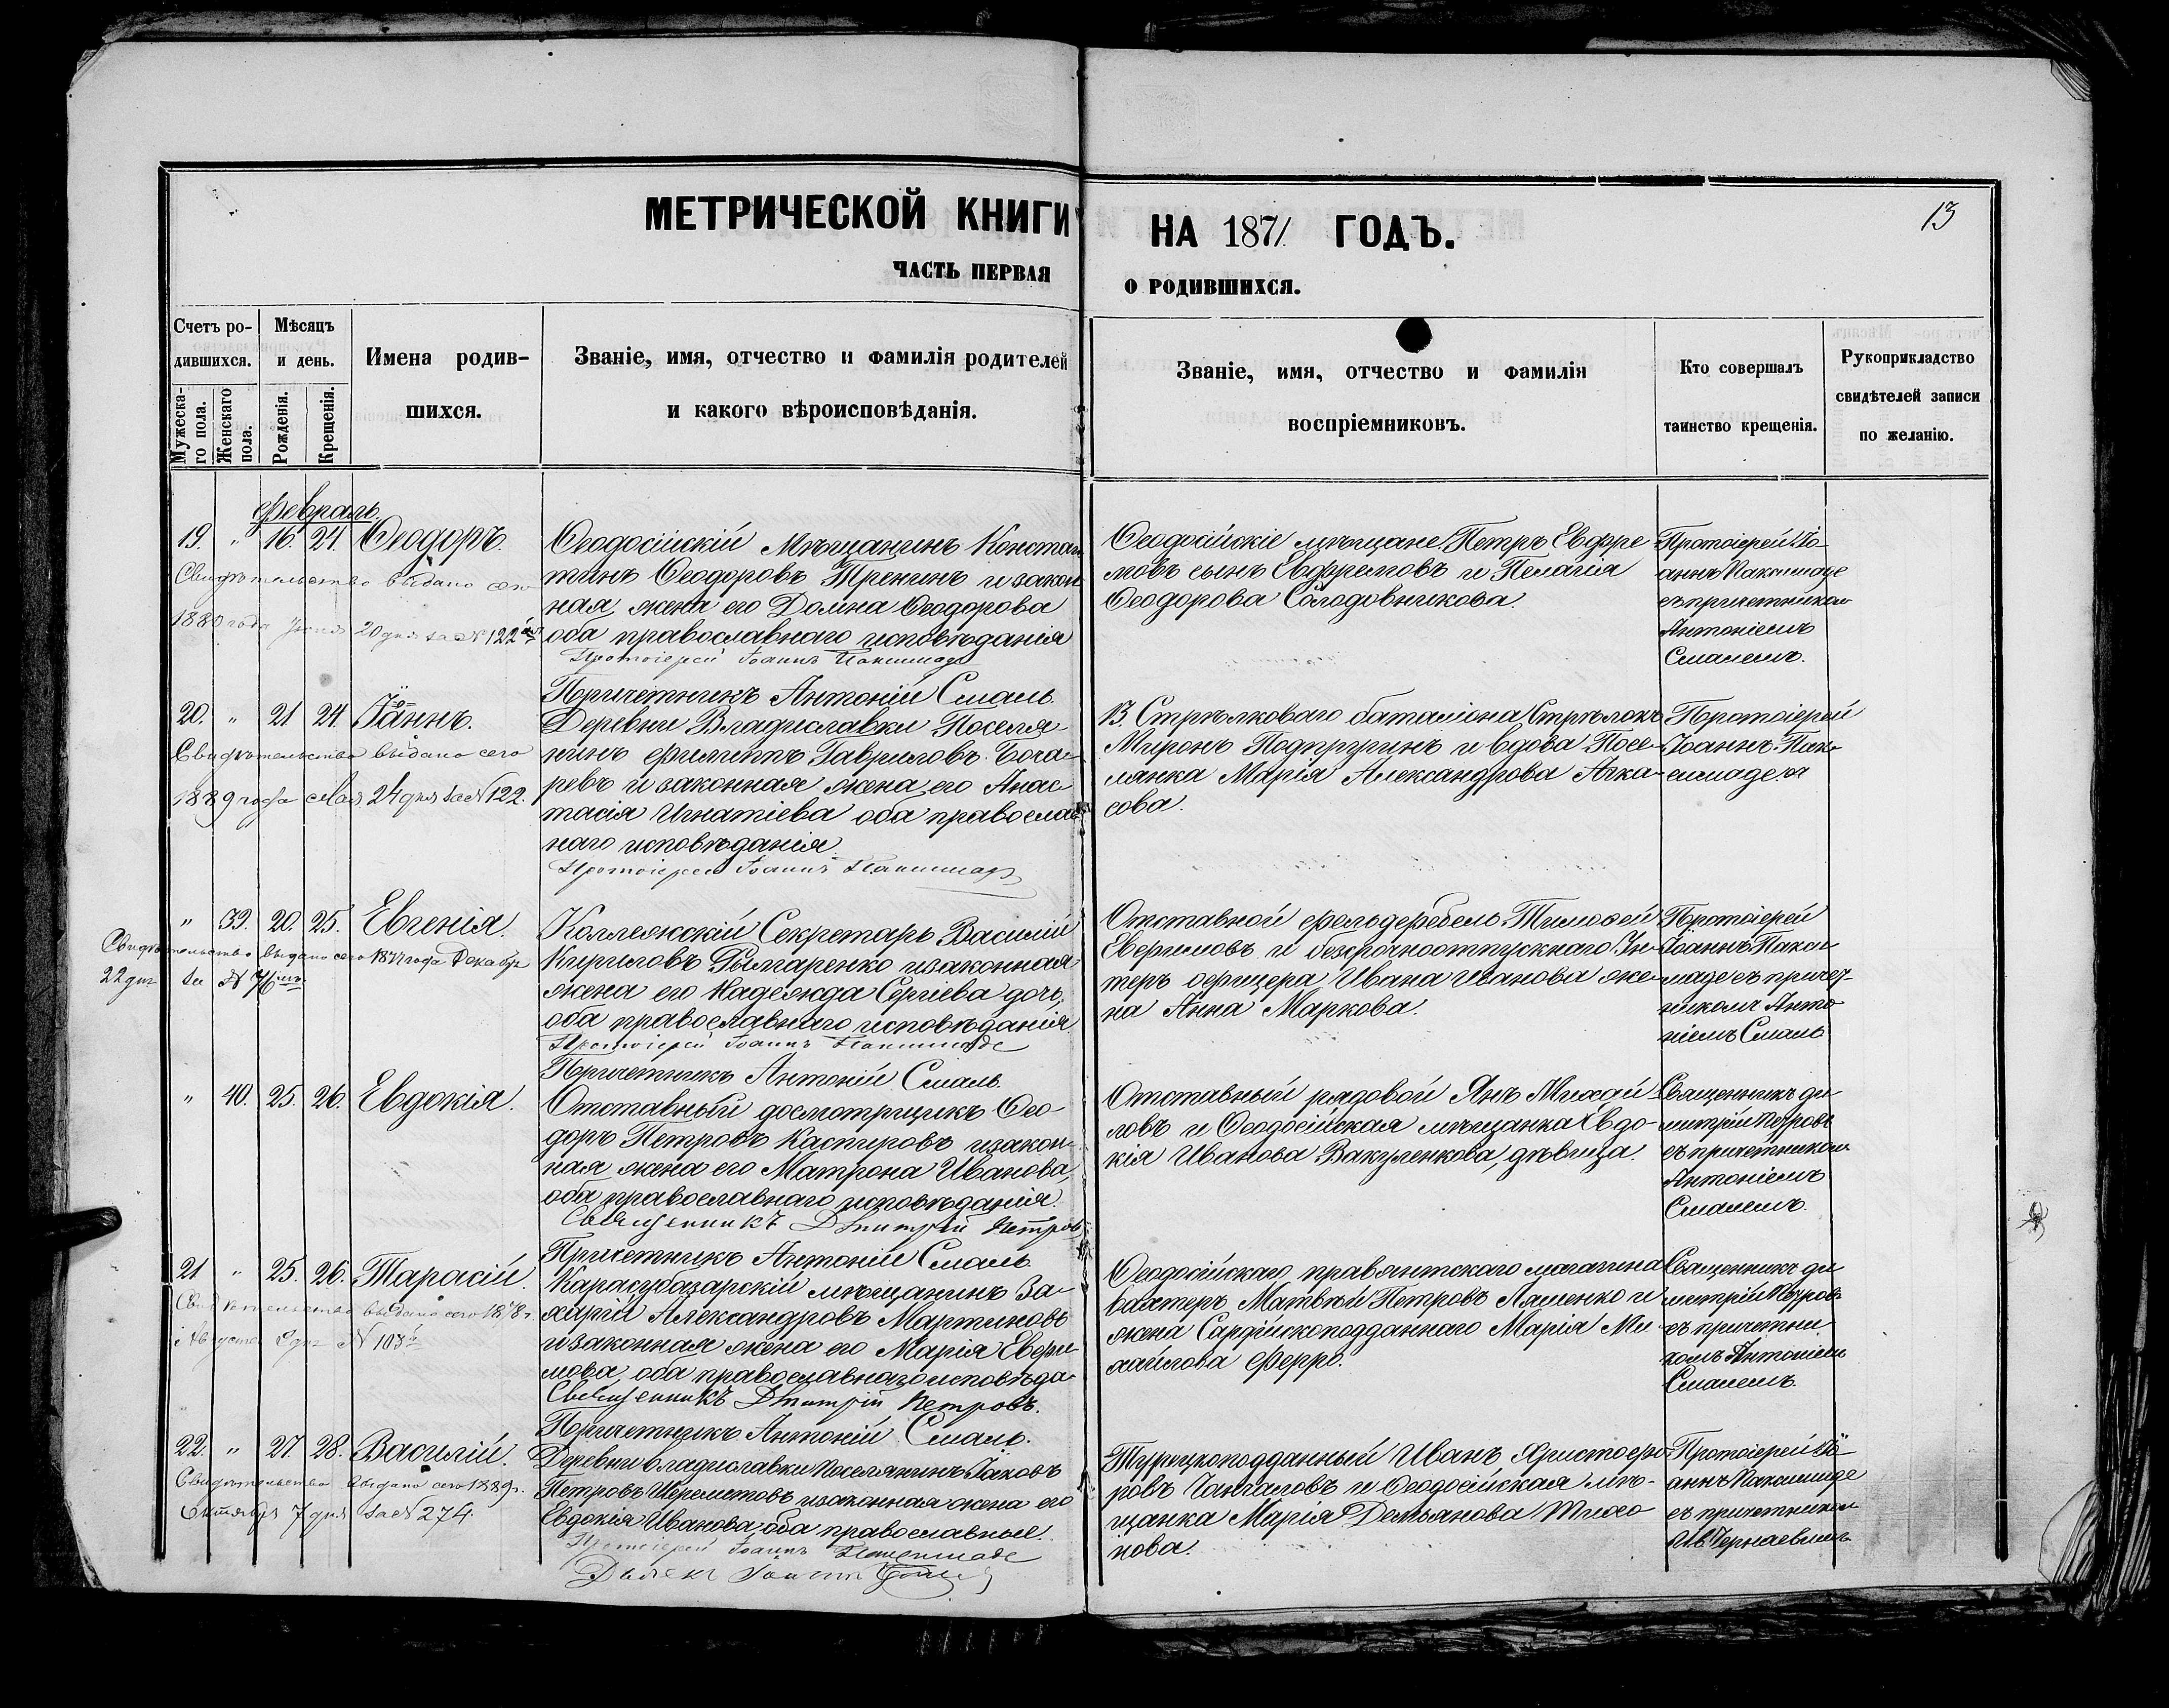 МЕТРИЧЕСКОЙ КНИГИ НА 1871 ГОДЪ.
13
ЧАСТЬ ПЕРВАЯ О РОДИВШИХСЯ.
Счетъ ро-
дившихся.
Мужеска-
го пола.
Женскаго
пола.
Мѣсяцъ
и день.
Рожденія.
Крещенія.
Имена родив-
шихся.
Званіе, имя, отчество и фамилія родителей
и какого вѣроисповѣданія.
Званіе, имя, отчество и фамилія
воспріемниковъ.
Кто совершалъ
таинство крещенія.
Рукоприкладство
свидѣтелей записи
по желанію.
Февраль.
19. " 16. 21. Ѳеодоръ.
Свидѣтельство выдано сего
1880 года Іюня 20 дня за № 122
Ѳеодосійскій Мѣщанинъ Констан
тинъ Ѳеодоровъ Тренинъ и закон
ная жена его Домна Ѳеодорова
оба православнаго исповѣданія
Протоіерей Іоаннъ
Причетникъ Антоній Смаль.
Ѳеодосійскіе мѣщане Петръ Евфре
мовъ сынъ Евфремовъ и Пелагія
Ѳеодорова Солодовникова.
Протоіерей Іо
аннъ
съ причетником
Антоніемъ
Смалемъ.
20. " 21 24. Іоаннъ.
Свидѣтельство выдано сего
1889 года Мая 24 дня за № 122.
Деревни Владиславки Поселя
нинъ Филиппъ Гавриловъ Боча-
ревъ и законная жена его Анас
тасія Игнатіева оба православ
наго исповѣданія.
Протоіерей Іоаннъ
13. Стрѣлковаго баталіона Стрѣлокъ
Миронъ Подпругинъ и вдова Посе-
лянка Марія Александрова Ака-
сова.
Протоіерей
Іоаннъ
" 39. 20. 25. Евгенія.
Свидѣтельство выдано сего 1877 года Декабря
22 дня за № 76
Коллежскій Секретарь Василій
Кириловъ и законная
жена его Надежда Сергіева дочь,
оба православнаго исповѣданія
Протоіерей Іоаннъ
Причетникъ Антоній Смаль.
Отставной фельдфебель Тимофей
и безсрочноотпускнаго Ун-
теръ офицера Ивана Иванова же-
на Анна Маркова.
Протоіерей
Іоаннъ
съ причет-
никомъ Анто
ніемъ Смаль
" 40. 25. 26. Евдокія.
Отставный досмотрщикъ Ѳео-
доръ Петровъ Каспировъ и закон-
ная жена его Матрона Иванова,
оба православнаго исповѣданія.
Священникъ Дмитрій Петровъ
Причетникъ Антоній Смаль
Отставный рядовой Янъ Михай
ловъ и Ѳеодосійская мѣщанка Евдо-
кія Иванова Вакуленкова, дѣвица.
Священникъ Ди
митрій Петровъ
съ причетником
Антоніемъ
Смалемъ.
21 " 25. 26. Тарасій.
Свидѣтельство выдано сего 1878 г.
Августа 9 дня № 108
Карасубазарскій мѣщанинъ За-
харій Александровъ Мартиновъ
и законная жена его Марія Ефи-
мова, оба православнаго исповѣда-
Священникъ Дмитрій Петровъ.
Причетникъ Антоній Смаль.
Ѳеодосійскаго провіянтскаго магазина
вахтеръ Матвѣй Петровъ Ляшенко и
жена Сардійскоподданнаго Марія Ми
хайлова Ферро.
Священникъ Ди
митрій Петровъ
съ причетни
комъ Антоніемъ
Смалемъ.
22. " 27. 28. Василій.
Свидѣтельство выдано сего 1889 г.
Октября 7 дня за № 274.
Деревни Владиславки Поселянинъ Іаковъ
Петровъ Шереметовъ и законная жена его
Евдокія Иванова, оба православные.
Протоіерей Іоаннъ
Іоаннъ
Турецкоподданный Иванъ Христофо
ровъ и Ѳеодосійская мѣ-
щанка Марія Демьянова Тихо
нова.
Протоіерей Іо
аннъ
съ причетником